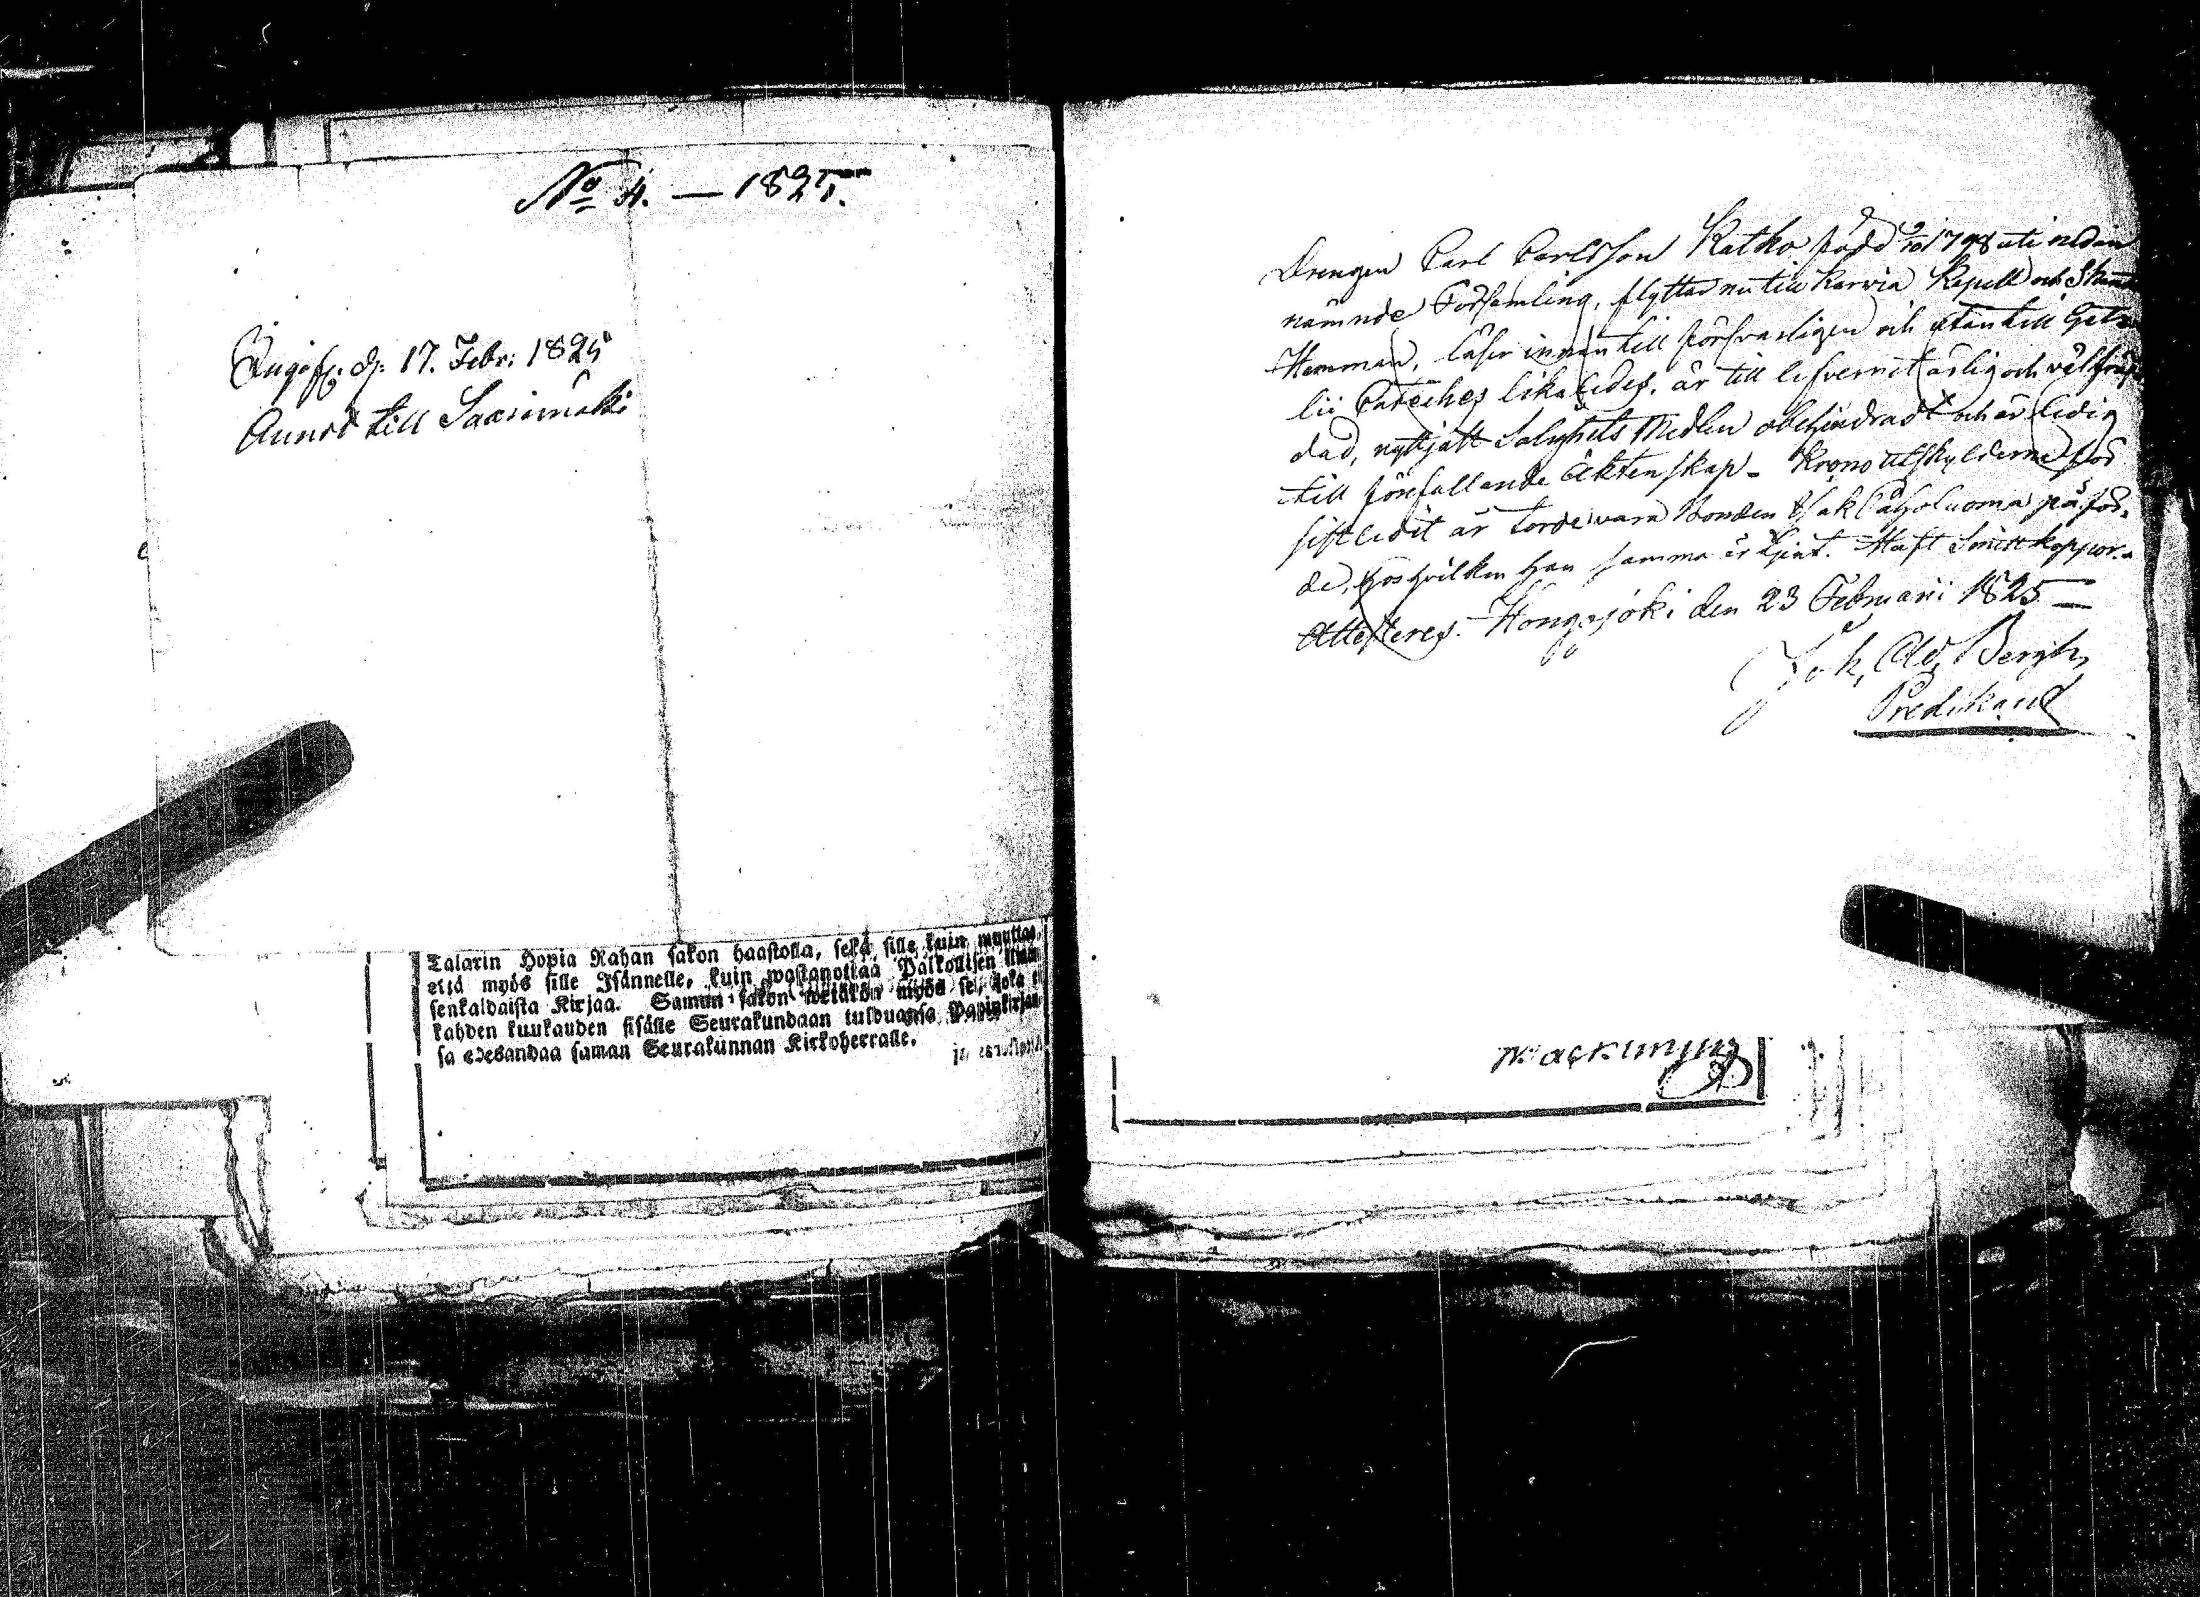 No 4. — 1825.
d. 17. Febr: 1825
till
Talarin Hopia Rahan sakon haastolla, sekä sille kuin muuttaa,
että myös sille Isännelle, kuin wastanottaa Palkollisen ilman
senkaldaista Kirjaa. Saman sakon wetäkön myös se, joka
kahden kuukauden sisälle Seurakundaan tulduansa Papinkirjaa
sa edesandaa saman Seurakunnan Kirkoherralle.
Drengen Carl Carlsson Katko född 9/10 1798 uti nedan
nämnde Församling, flyttar nu till Karvia Kapell och
Hemman, läser innantill försvarligen och utantill
lii Cateches likaledes, är till lefvernet ärlig och välfräg
dad, nyttjatt Salighets Medlen obehindradt och är ledig
till förefallande Äktenskap - Krono utskylderna för
sistledit år torde vara Bonden Isak på för.
de, hos hvilken han samma år tjent. Haft Smittkoppor.
Attesteres. Hongojoki den 23 Februarii 1825 —
Joh. Ad. Bergh,
Predikant